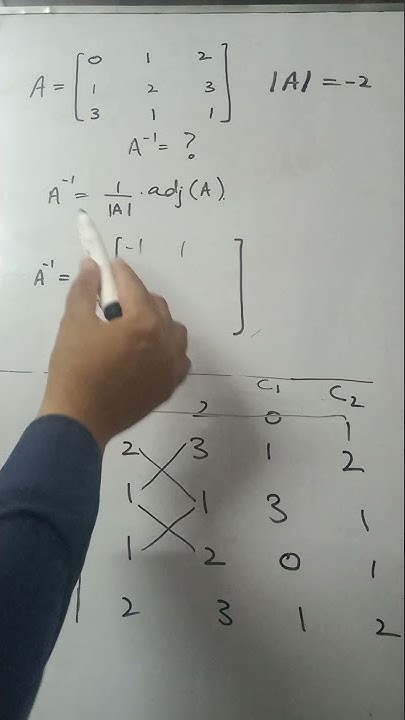 0 1 2
A = 1 2 3 |A| = -2
3 1 1
A⁻¹ = ?
A⁻¹ = 1/|A| · adj(A).
A⁻¹ = [ -1 1 ]
C₁ C₂
2 0 1
2 3 1 2
1 1 3 1
1 2 0 1
2 3 1 2